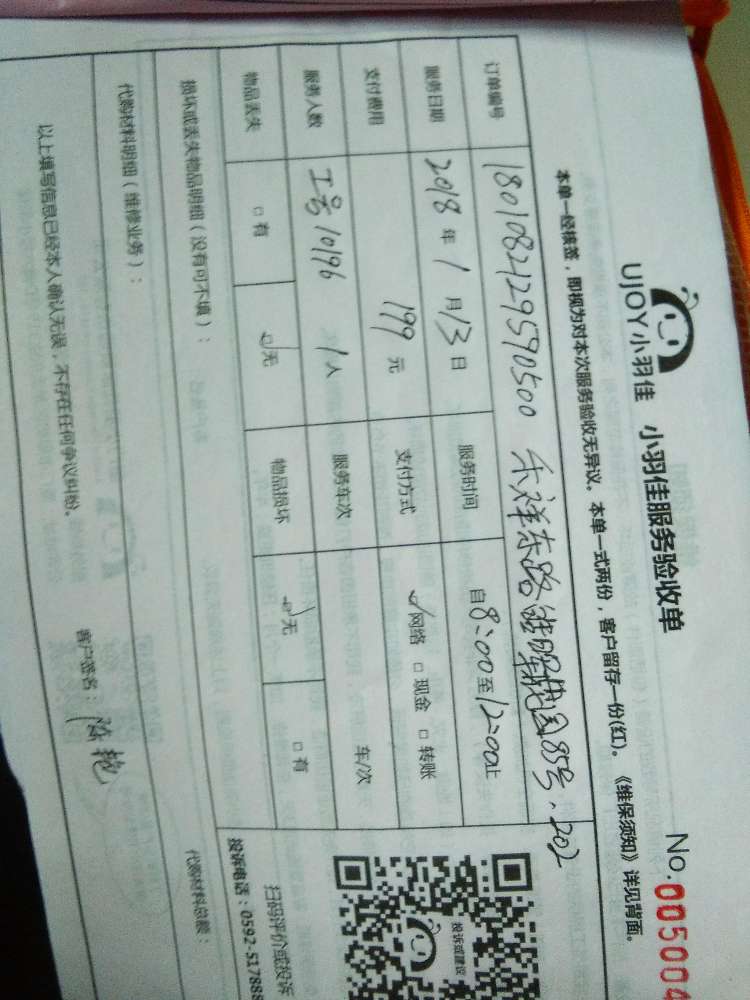 UJOY小羽佳 小羽佳服务验收单
No.005004
本单一经核签，即视为对本次服务验收无异议。本单一式两份，客户留存一份(红)。《维保须知》详见背面。
订单编号 180108212959050 0 禾祥东路 85号,202
服务日期 2018 年 1 月 13 日 服务时间 自8:00至12:00止
支付费用 199 元 支付方式 ☑网络 □现金 □转账
服务人数 工号10196 1人 服务车次 车/次
物品丢失 □有 ☑无 物品损坏 ☑无 □有
损坏或丢失物品明细（没有可不填）：
代购材料明细（维修业务）： 代购材料总额：
以上填写信息已经本人确认无误，不存在任何争议纠纷。 客户签名：陈艳
投诉或建议
扫码评价或投诉
投诉电话：0592-517888